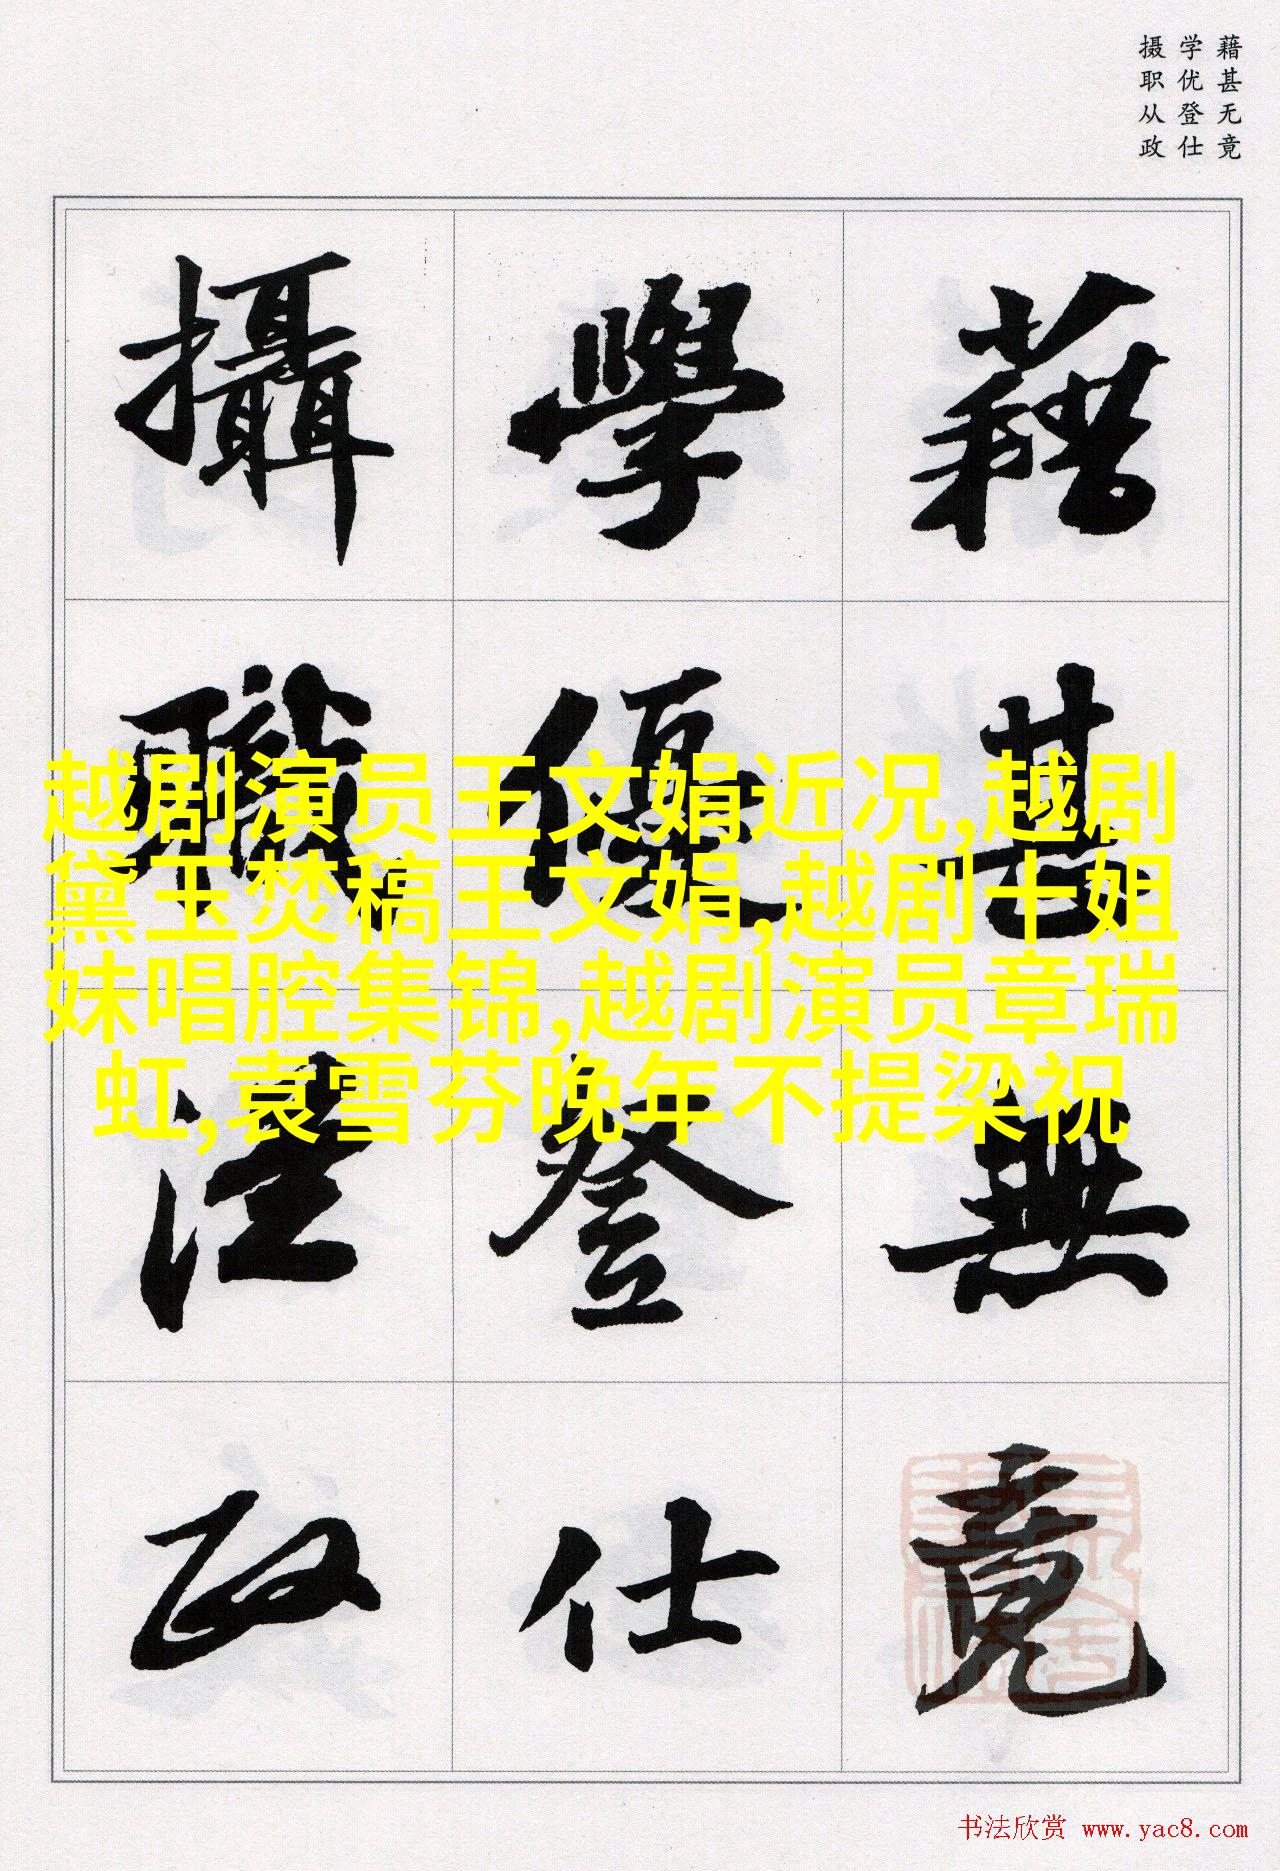 藉甚无竟
学优登仕
摄职从政
藉甚無竟
學優登仕
攝職從政
越剧演员王文娟近况,越剧
黛玉焚稿王文娟,越剧十姐
妹唱腔集锦,越剧演员章瑞
虹,袁雪芬晚年不提梁祝
书法欣赏 www.yac8.com